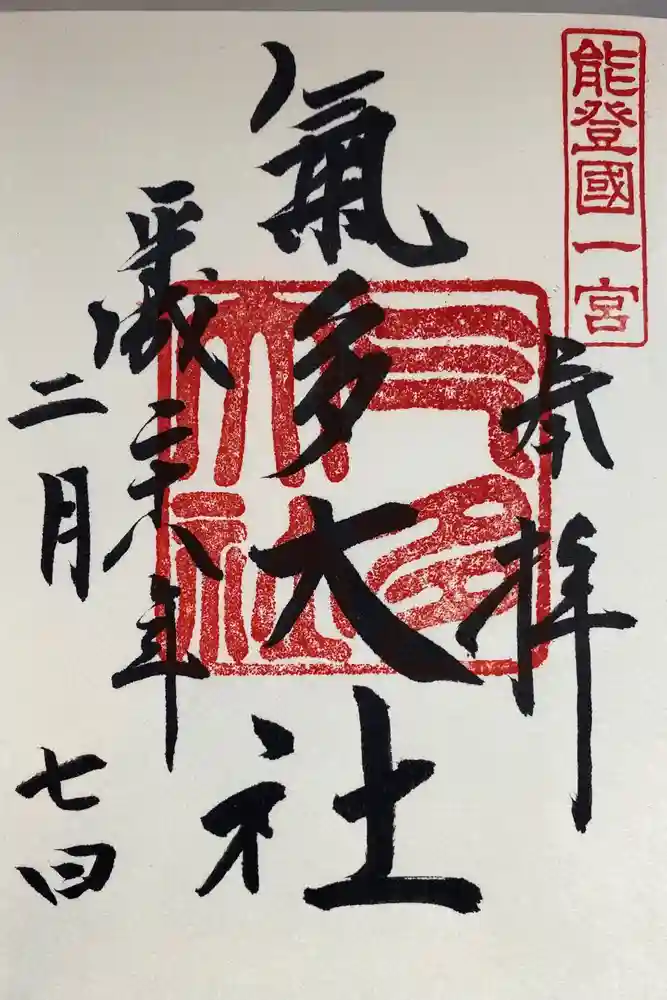 能登國一宮
奉拝
氣多大社
平成二十八年
二月
七日
气多大社